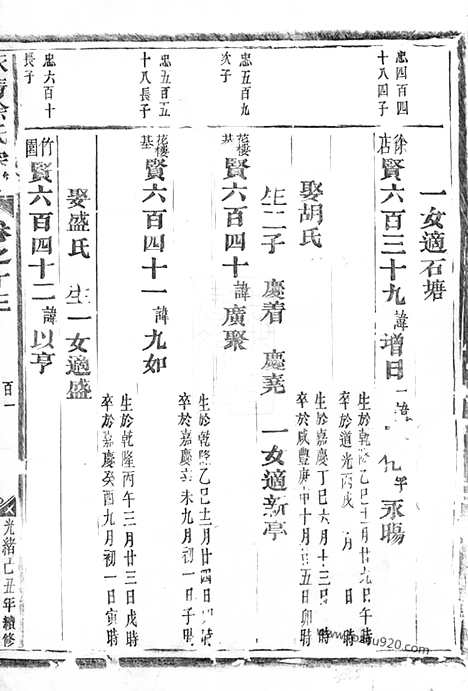 一女適石塘
忠四百四
十八四子
徐店
賢六百三十九
諱增
永暘
生於乾隆乙巳
月廿九日午時
卒於道光丙戌
月
日
時
娶胡氏
生於嘉慶丁巳六月十三日
時
卒於咸豐庚申十月
五日卯時
生二子
慶着
慶堯
一女適新亭
忠五百九
次子
花樓基
賢六百四十
諱廣聚
生於乾隆乙巳
月廿四日
時
卒於嘉慶
未九月初一日子
時
忠五百五
十八長子
花樓基
賢六百四十一
諱九如
生於乾隆丙午三月廿三日戌時
卒於嘉慶癸酉九月初一日寅時
娶盛氏
生一女適盛
忠六百十
長子
竹園
賢六百四十二
諱以亨
徐氏宗
卷之十三
百一
光緒己丑年續修
920.com